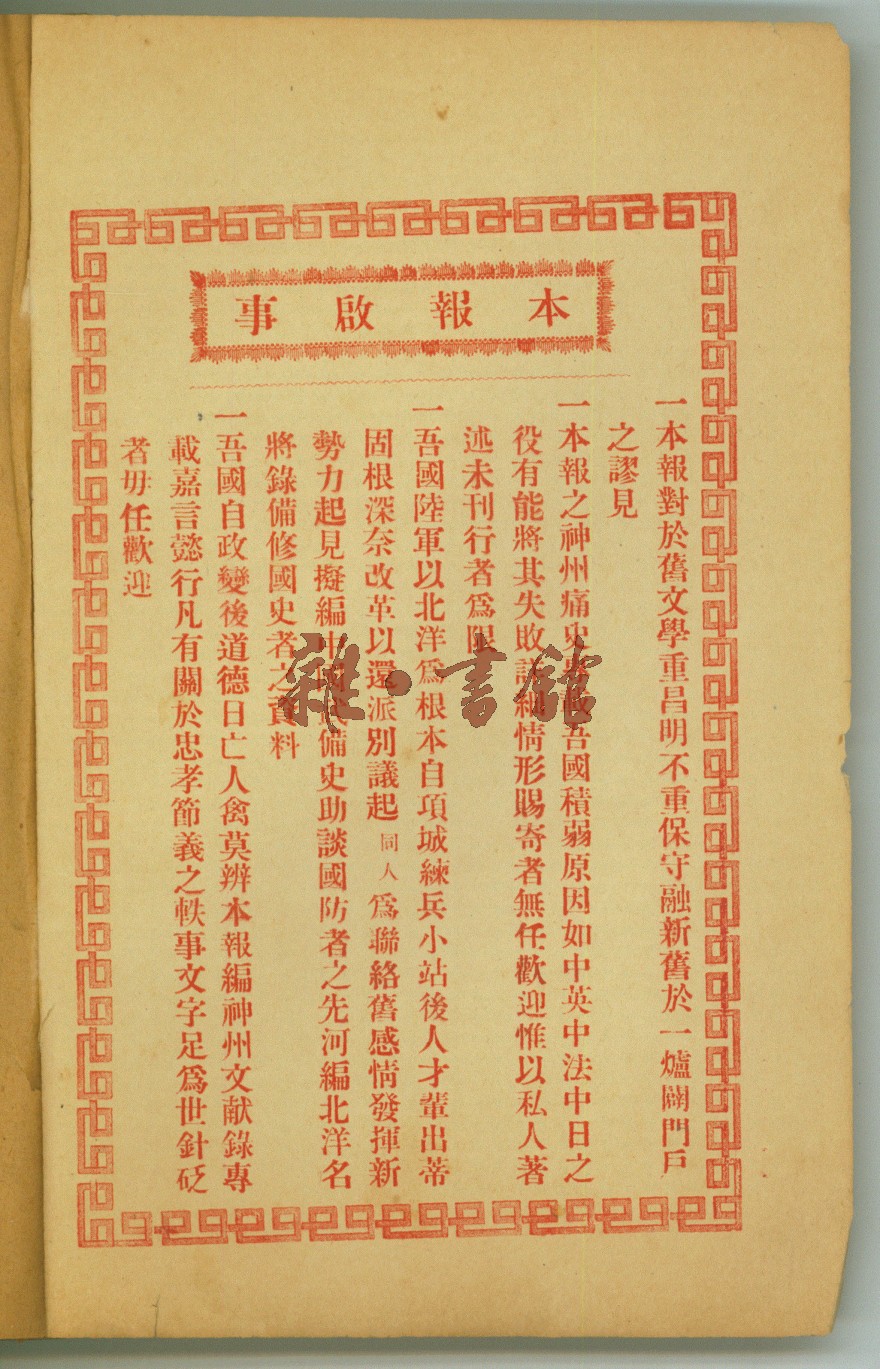 本報啟事
一本報對於舊文學重昌明不重保守融新舊於一爐闢門戶
之謬見
一本報之神州痛史 吾國積弱原因如中英中法中日之
役有能將其失敗 情形賜寄者無任歡迎惟以私人著
述未刊行者爲限
一吾國陸軍以北洋爲根本自項城練兵小站後人才輩出蒂
固根深奈改革以還派別議起同人爲聯絡舊感情發揮新
勢力起見擬編中國武備史助談國防者之先河編北洋名
將錄備修國史者之資料
一吾國自政變後道德日亡人禽莫辨本報編神州文献錄專
載嘉言懿行凡有關於忠孝節義之軼事文字足爲世針砭
者毋任歡迎
雜·書館